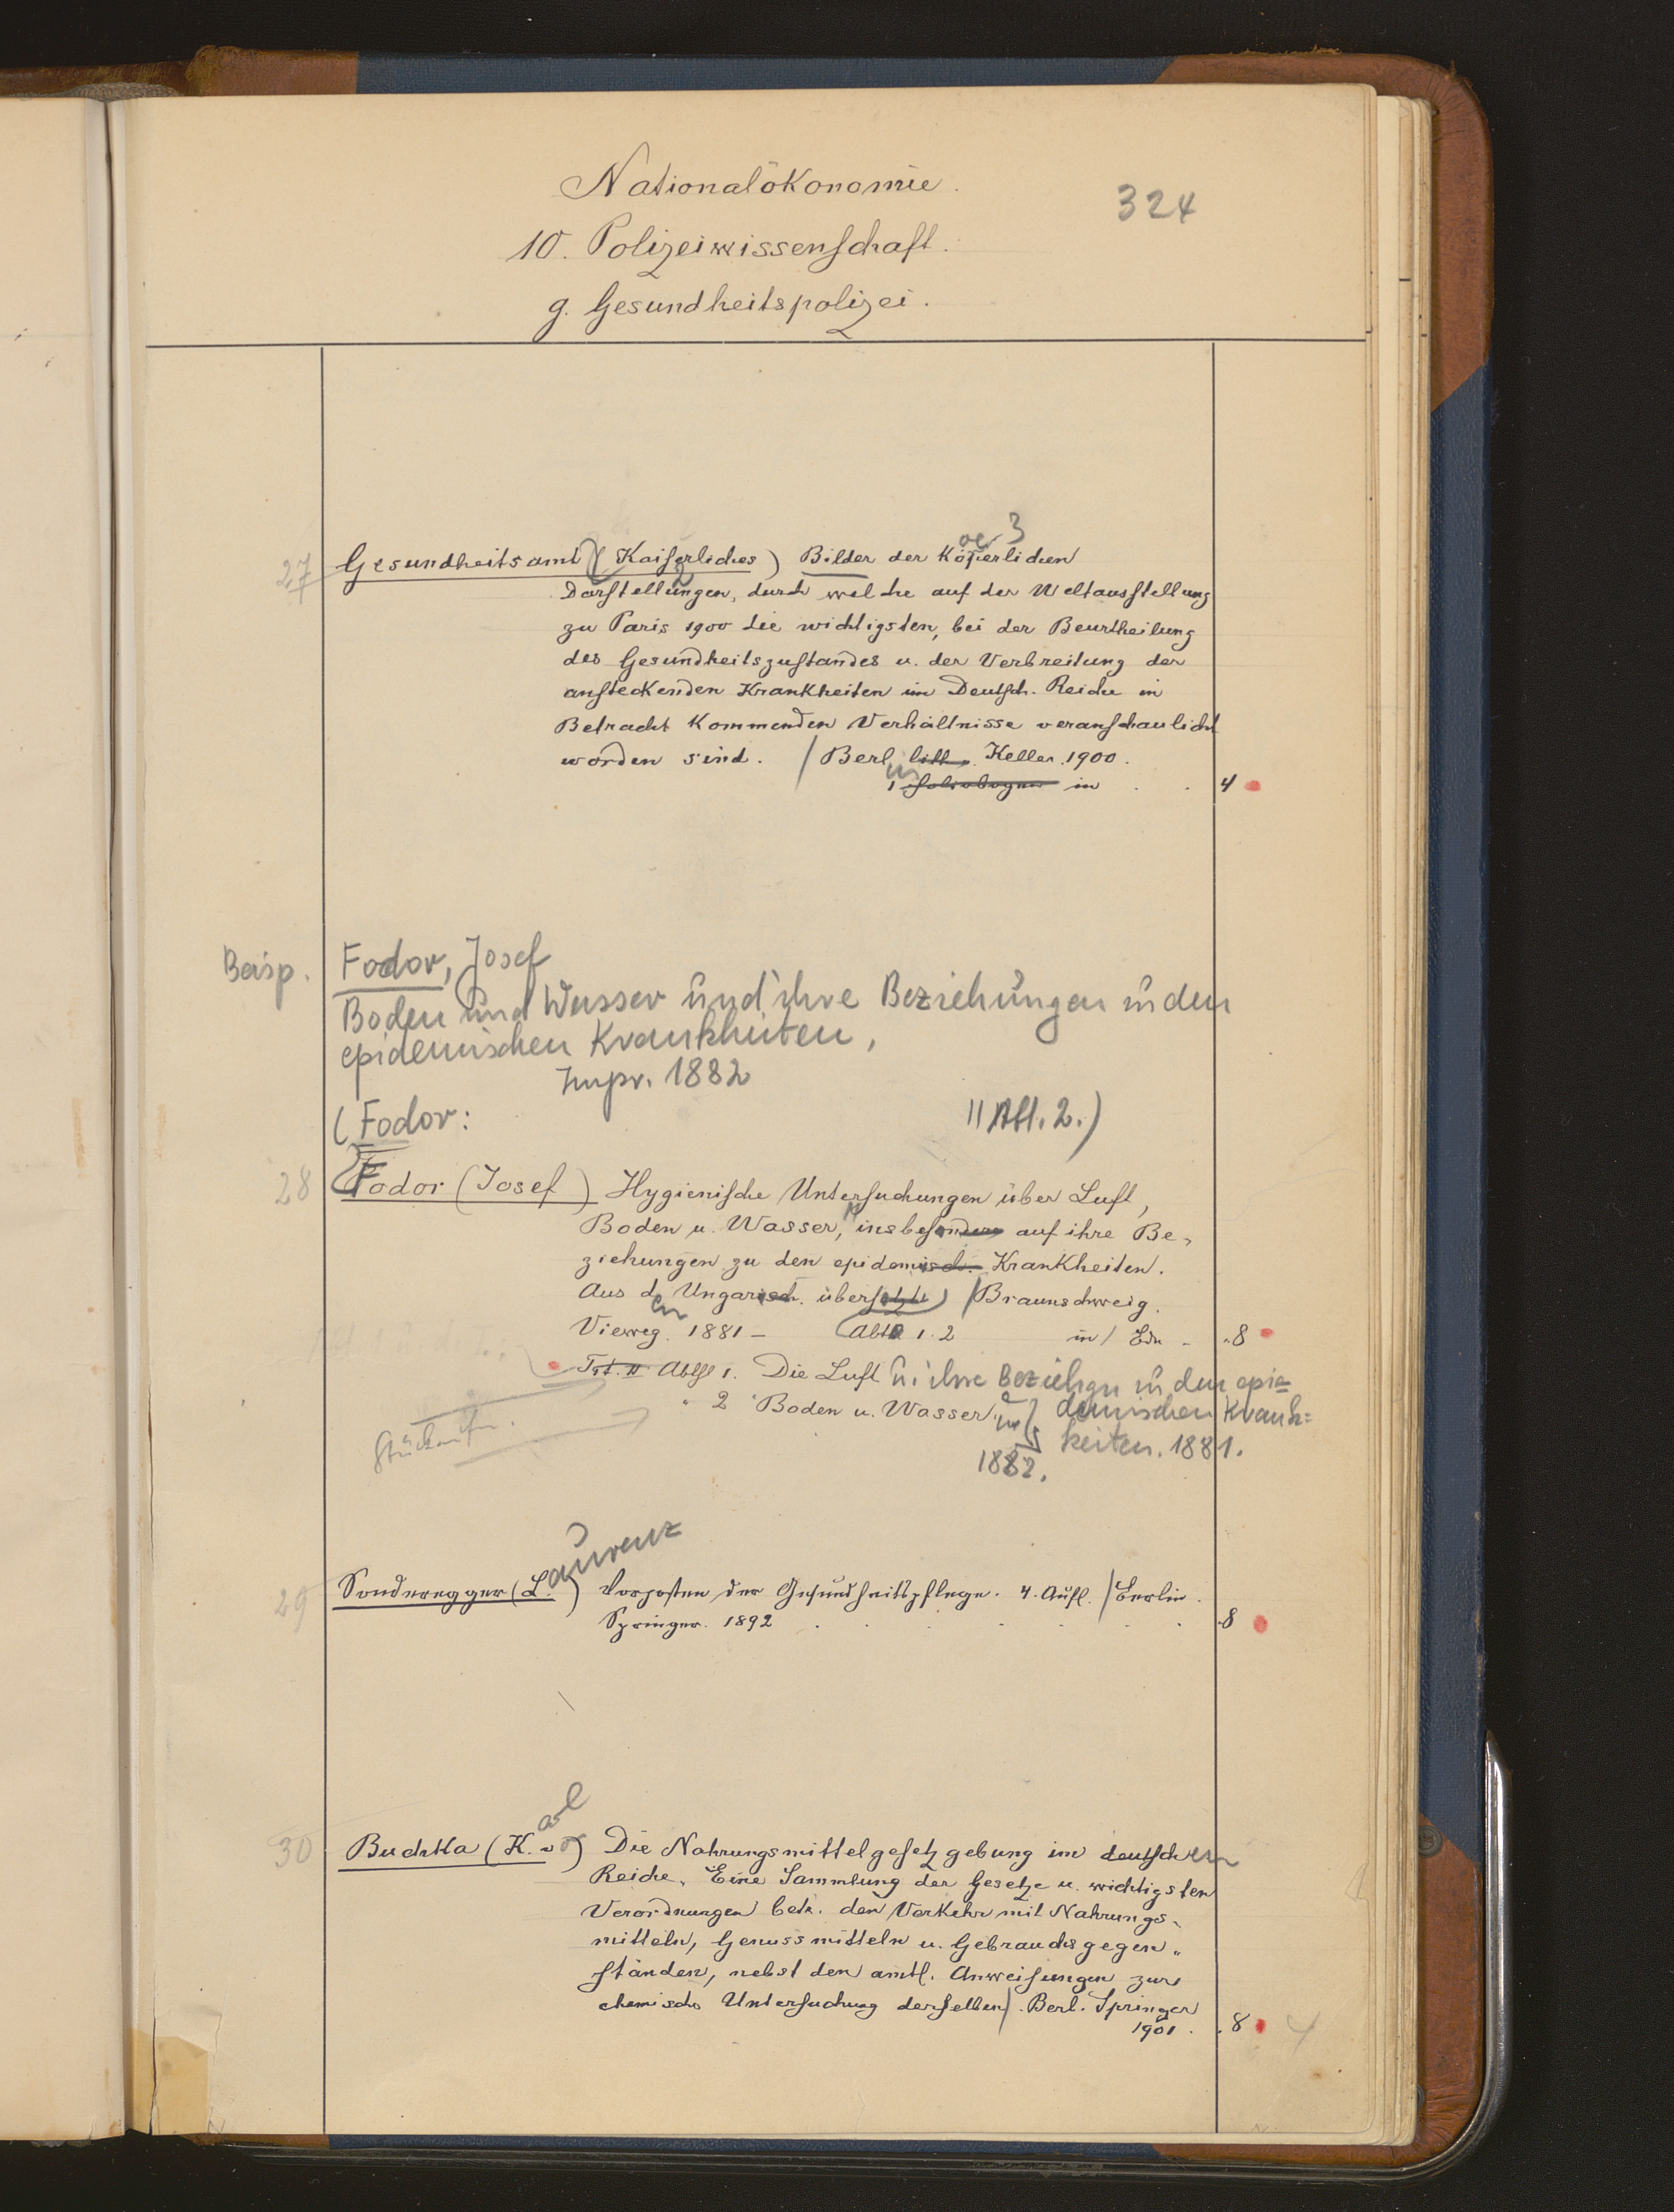 Nationalökonomie.
324
10. Polizeiwissenschaft.
g. Gesundheitspolizei.
27 Gesundheitsamt (Kaiserliches) Bilder der Köperlichen
Darstellungen, durch welche auf der Weltausstellung
zu Paris 1900 die wichtigsten, bei der Beurtheilung
des Gesundheitszustandes u. der Verbreitung der
ansteckenden Krankheiten im Deutsch. Reiche in
Betracht kommenden Verhältnisse veranschaulicht
worden sind. / Berl. litt. Keller. 1900.
1 Foliobogen in . . 4
Beisp. Fodor, Josef
Boden und Wasser und ihre Beziehungen zu den
epidemischen Krankheiten,
Impr. 1882
(Fodor: II Abt. 2.)
28 Fodor (Josef) Hygienische Untersuchungen über Luft,
Boden u. Wasser, insbesondere auf ihre Be-
ziehungen zu den epidemisch. Krankheiten.
Aus d. Ungarisch. übersetzt / Braunschweig.
Vieweg. 1881 - Abt 1. 2 in 1 Bdn - .8
Abthl 1. Die Luft u. ihre Beziehgn zu den epi=
" 2 Boden u. Wasser demischen Krank=
heiten. 1881.
1882.
29 Sonderegger (L.aurenz) Vorposten der Gesundheitspflege. 4. Aufl. / Berlin.
Springer. 1892 . . . . . 8
30 Buchka (K. arl v.) Die Nahrungsmittelgesetzgebung im deutschen
Reiche. Eine Sammlung der Gesetze u. wichtigsten
Verordnungen betr. den Verkehr mit Nahrungs-
mitteln, Genussmitteln u. Gebrauchsgegen-
ständen, nebst den amtl. Anweisungen zur
chemische Untersuchung derselben /. Berl. Springer
1901. .8 4